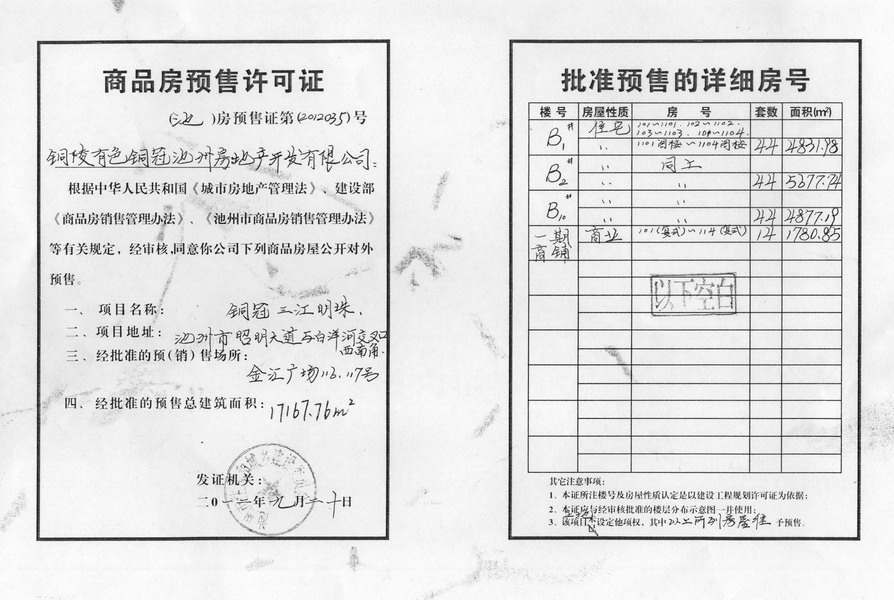 商品房预售许可证
(池)房预售证第(2012035)号
铜陵有色铜冠池州房地产开发有限公司:
根据中华人民共和国《城市房地产管理法》、建设部
《商品房销售管理办法》、《池州市商品房销售管理办法》
等有关规定,经审核,同意你公司下列商品房屋公开对外
预售。
一、项目名称: 铜冠三江明珠.
二、项目地址: 池州市昭明大道与白洋河交叉口
西南角.
三、经批准的预(销)售场所:
金汇广场116.117号
四、经批准的预售总建筑面积: 17167.76m²
发证机关:
二0一二年九月二十日
批准预售的详细房号
楼号 房屋性质 房号 套数 面积(m²)
B1# 住宅 101~1101、102~1102、
103~1103、104~1104.
〃 1101阁楼~1104阁楼 44 4831.98
B2# 〃 同上
〃 〃 44 5677.74
B10# 〃 〃
〃 〃 44 4877.19
一期商铺 商业 101(复式)~114(复式) 14 1780.85
以下空白
其它注意事项:
1、本证所注楼号及房屋性质认定是以建设工程规划许可证为依据;
2、本证房与经审核批准的楼层分布示意图一并使用;
3、该项目未设定他项权,其中以上所列房屋准予预售。